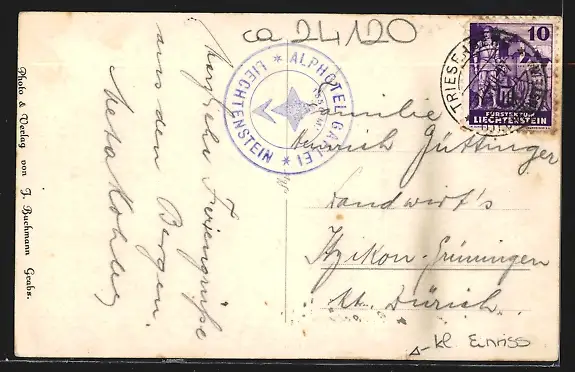 ca 24120
Herzliche Feriengrüsse
aus den Bergen
Meta Kohler
ALPHOTEL GAFLEI
LIECHTENSTEIN
10
FÜRSTENTUM
LIECHTENSTEIN
TRIESE
Familie
Heinrich Güttinger
Landwirt's
Itzikon-Grüningen
Kt. Zürich.
kl Einriss
Photo & Verlag von J. Buchmann Grabs.